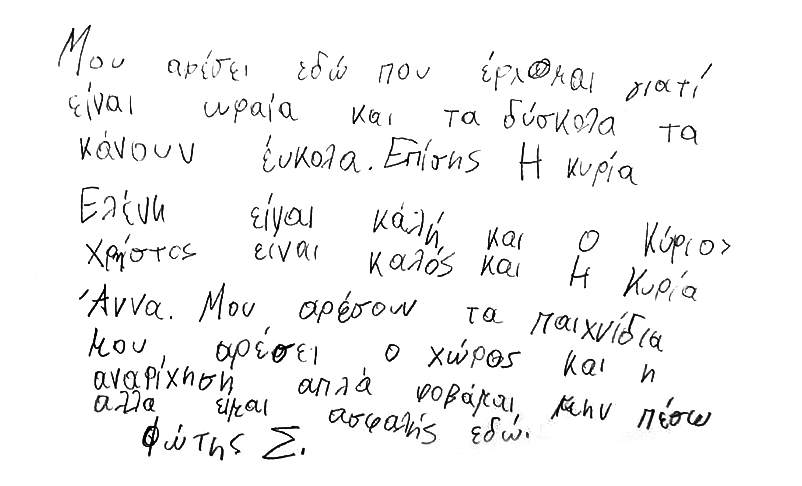 Μου αρέσει εδώ που έρχομαι γιατί
είναι ωραία και τα δύσκολα τα
κάνουν έυκολα. Επίσης Η κυρία
Ελένη είναι κάλή και ο Κύριος
χρήστος ειναι καλός και Η Κυρία
Άννα. Μου αρέσουν τα παιχνίδια
μου αρέσει ο χώρος και η
αναρίχηση απλά φοβάμαι μην πέσω
αλλα είμαι ασφαλής εδώ.
Φώτης Σ.